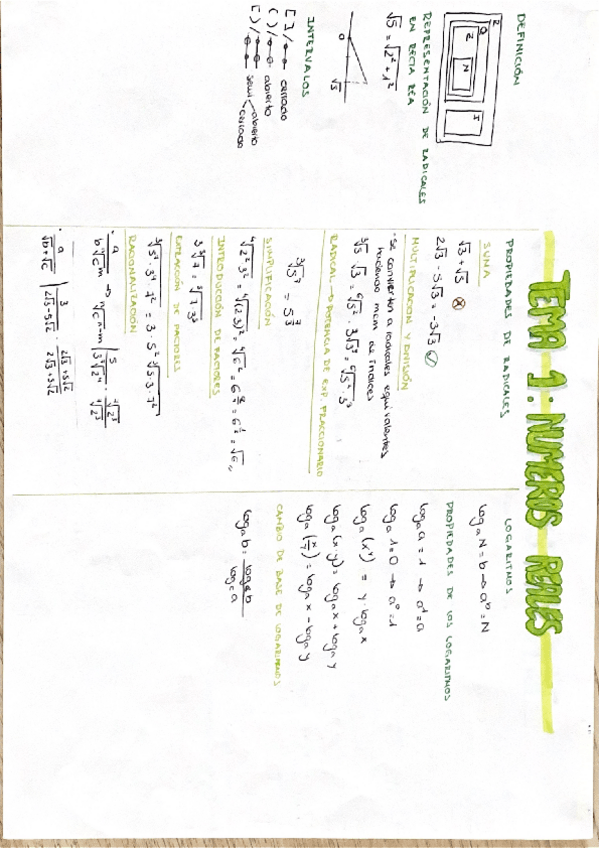 TEMA 1: NUMEROS REALES
DEFINICIÓN
R
Q
Z
N
I
REPRESENTACIÓN DE RADICALES
EN RECTA REAL
√5 = √2² + 1²
0 √5
INTERVALOS
[ ] / cerrado
( ) / abierto
[ ) / semi abierto
( ] / cerrado
PROPIEDADES DE RADICALES
SUMA
√3 + √5
2√3 - 5√3 = -3√3
MULTIPLICACIÓN Y DIVISIÓN
· Se convierten a radicales equivalentes
haciendo mcm de índices
RADICAL → POTENCIA DE EXP. FRACCIONARIO
SIMPLIFICACIÓN
⁴√2²·3² = ⁴√(2·3)² = ⁴√6² = 6^(2/4) = 6^(1/2) = √6
INTRODUCCIÓN DE FACTORES
3 ³√7 = ³√7·3³
EXTRACCIÓN DE FACTORES
RACIONALIZACIÓN
a / (√b + √c)
3 / (2√3 - 5√2) · (2√3 + 5√2) / (2√3 + 5√2)
LOGARITMOS
logₐ N = b → aᵇ = N
PROPIEDADES DE LOS LOGARITMOS
logₐ a = 1 → a¹ = a
logₐ 1 = 0 → a⁰ = 1
logₐ (xʸ) = y · logₐ x
logₐ (x y) = logₐ x + logₐ y
logₐ (x/y) = logₐ x - logₐ y
CAMBIO DE BASE DE LOGARITMOS
logₐ b = log_c b / log_c a